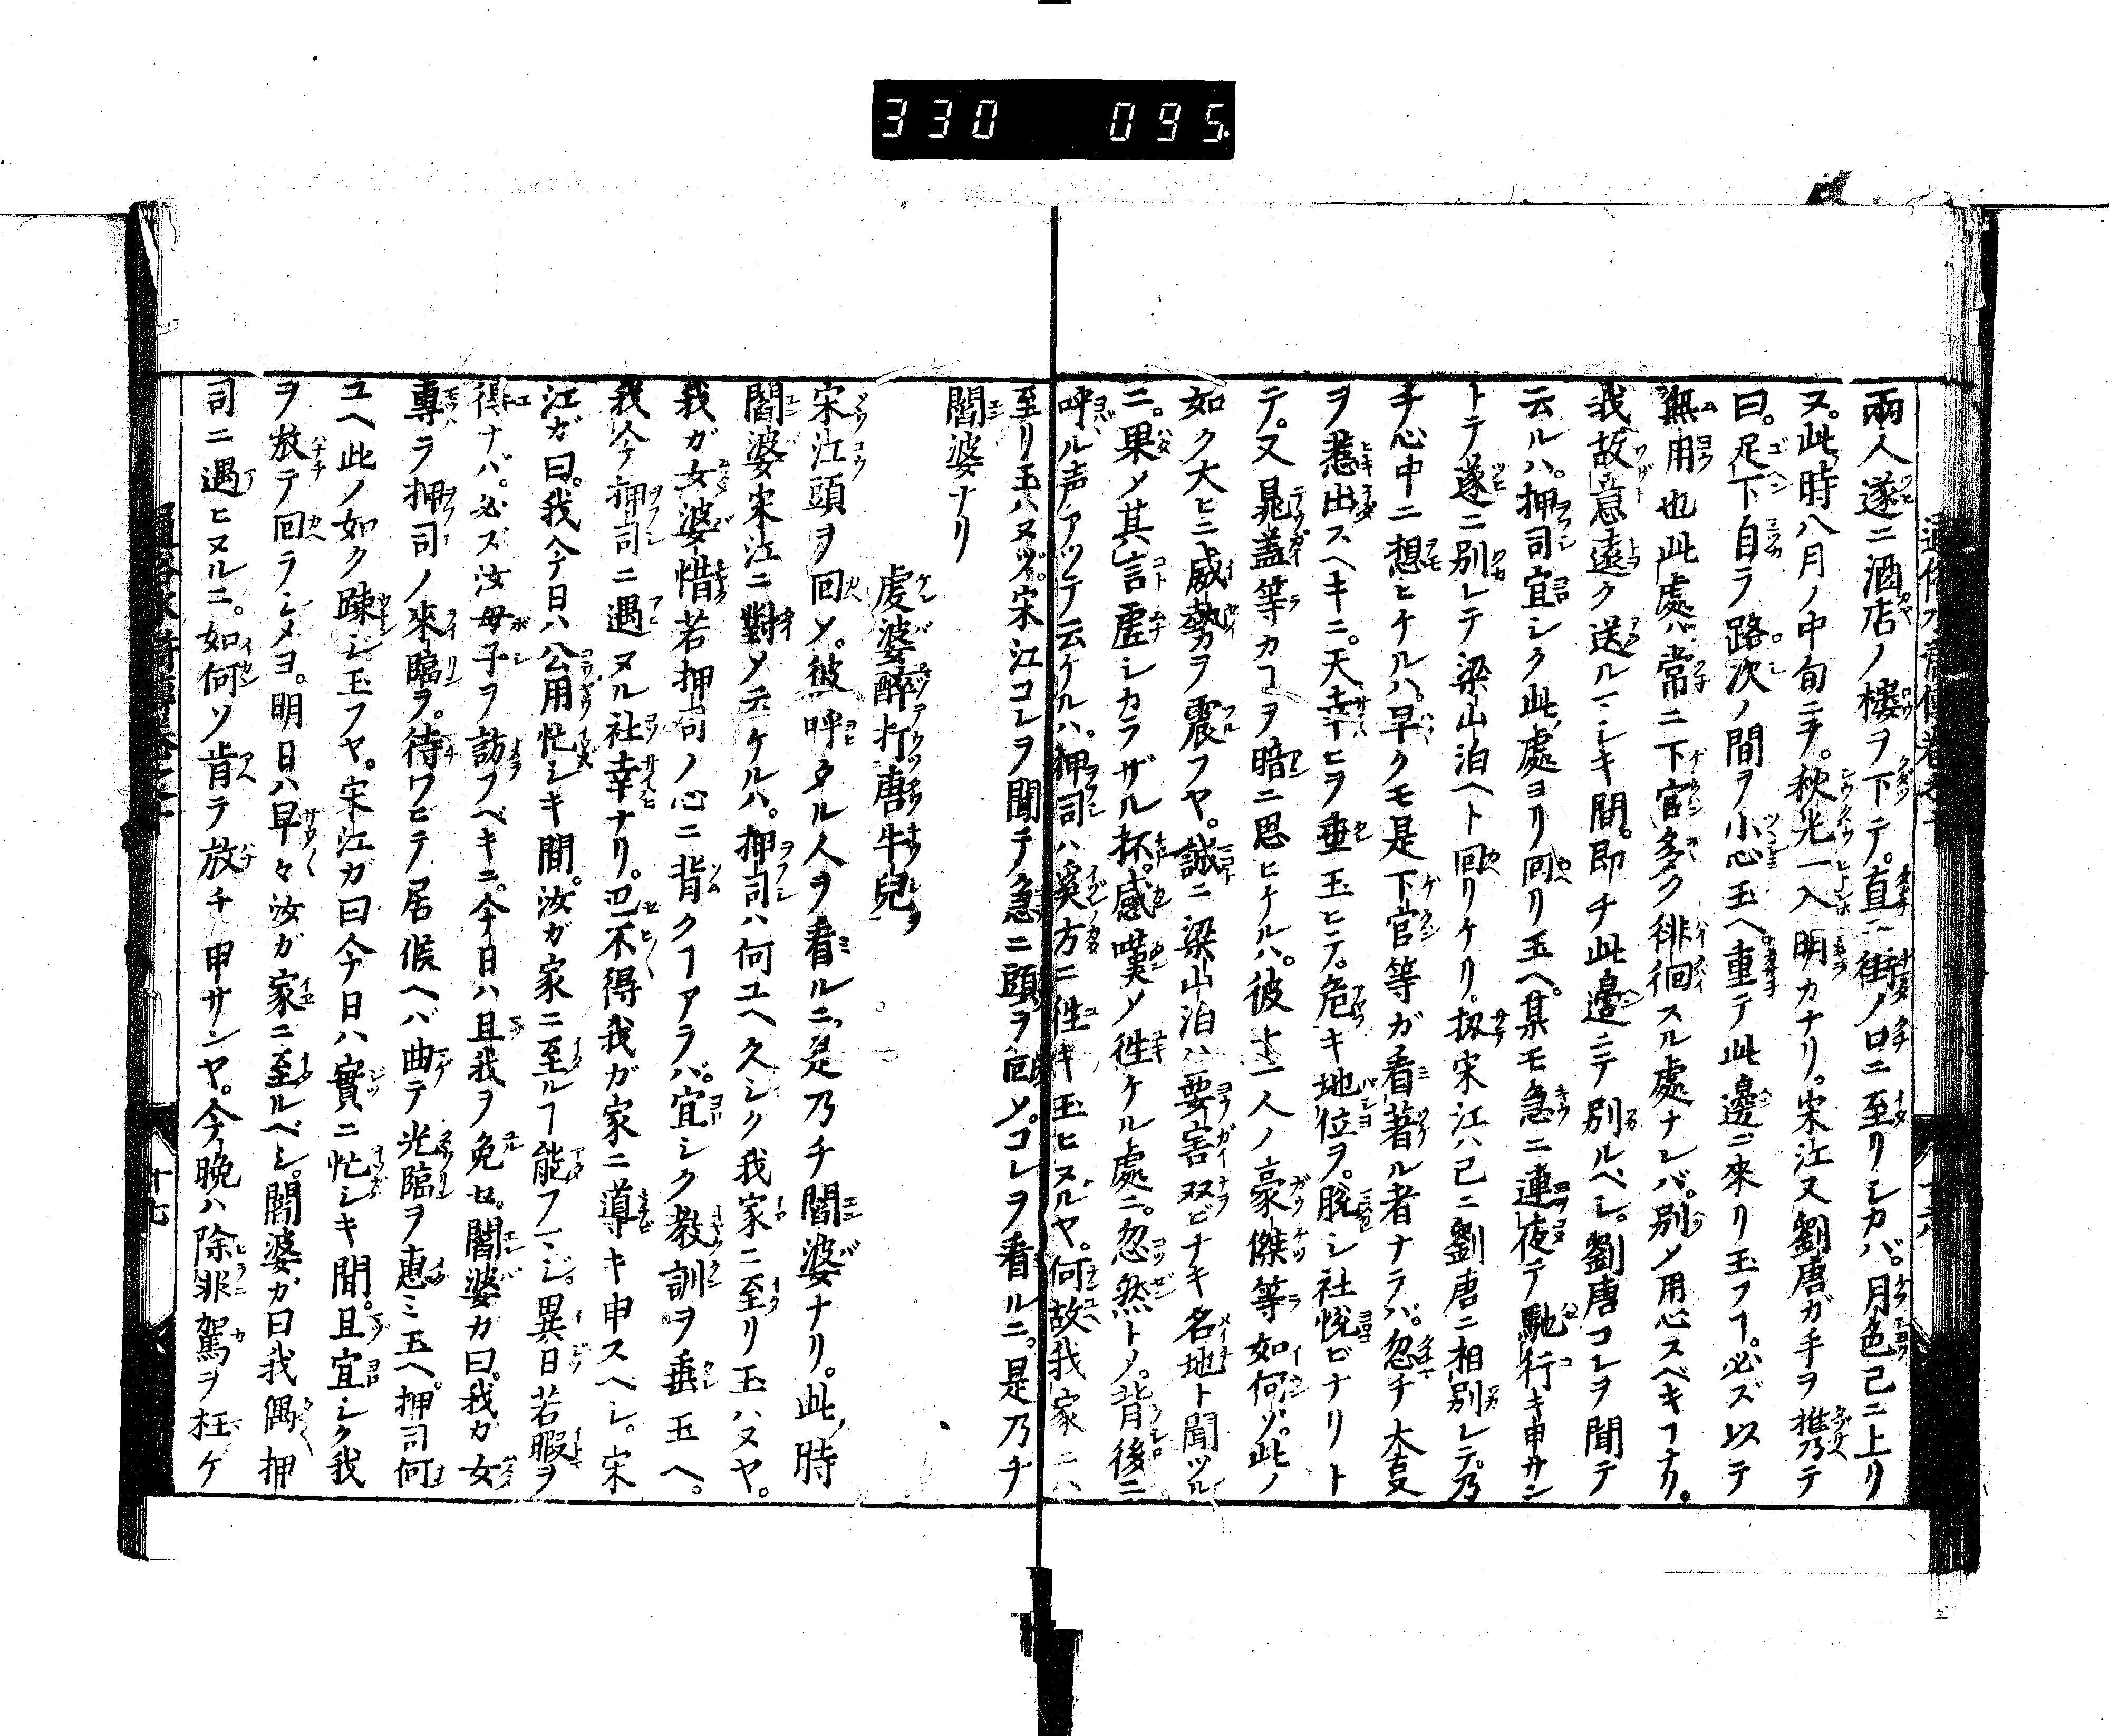 330 095
兩人遂ニ酒店ノ樓ヲ下テ。直ニ街ノ口ニ至リシカバ。月色已ニ上リ
ヌ。此時八月ノ中旬ニテ。秋光一入明カナリ。宋江又劉唐ガ手ヲ携テ
曰。足下自ラ路次ノ間ヲ小心玉ヘ。重テ此邊ニ來リ玉フヿ。必ズ以テ
無用也此處ハ常ニ下官多ク徘徊スル處ナレバ。別〆用心スベキヿナリ。
我故意遠ク送ルマシキ間。即チ此邊ニテ別ルベシ。劉唐コレヲ聞テ
云ルハ。押司宜シク此處ヨリ回リ玉ヘ。某モ急ニ連夜テ馳行キ申サン
トテ遂ニ別レテ梁山泊ヘト回リケリ。扨宋江ハ已ニ劉唐ニ相別レテ。乃
チ心中ニ想ヒケルハ。早クモ是下官等ガ看著ル者ナラバ。忽チ大変
ヲ惹出スヘキニ。天幸ヒヲ垂玉ヒテ。危キ地位ヲ。脱シ社悦ビナリト
テ。又晁蓋等カヿヲ暗ニ思ヒケルハ。彼十一人ノ豪傑等如何ゾ。此ノ
如ク大ヒニ威勢ヲ震フヤ。誠ニ梁山泊ハ要害双ビナキ名地ト聞ツル
ニ。果〆其言虚シカラザル杯。感嘆〆徃ケル處ニ。忽然ト〆。背後ニ
呼ル声アツテ云ケルハ。押司ハ奚方ニ徃キ玉ヒヌルヤ。何故我家ニハ
至リ玉ハヌゾ。宋江コレヲ聞チ急ニ頭ヲ回〆。コレヲ看ルニ。是乃チ
閻婆ナリ
虔婆醉打唐牛兒
宋江頭ヲ回〆。彼呼タル人ヲ看ルニ。是乃チ閻婆ナリ。此時
閻婆宋江ニ對〆云ケルハ。押司ハ何ユヘ久シク我家ニ至リ玉ハヌヤ。
我ガ女婆惜若押司ノ心ニ背クヿアラバ。宜シク教訓ヲ垂玉ヘ。
我今押司ニ遇ヌル社幸ナリ。巴不得我ガ家ニ導キ申スヘシ。宋
江ガ曰。我今日ハ公用忙シキ間。汝ガ家ニ至ルヿ能フマジ。異日若暇ヲ
得ナバ。必ズ汝母子ヲ訪フベキニ。今日ハ且我ヲ免セ。閻婆カ曰。我カ女
專ラ押司ノ來臨ヲ。待ワビテ居候ヘバ曲テ光臨ヲ惠ミ玉ヘ。押司何
ユヘ此ノ如ク踈ジ玉フヤ。宋江ガ曰今日ハ實ニ忙シキ間。且宜シク我
ヲ放テ回ラシメヨ。明日ハ早々汝ガ家ニ至ルベシ。閻婆ガ曰我偶押
司ニ遇ヒヌルニ。如何ソ肯テ放チ申サンヤ。今晚ハ除非駕ヲ枉ケ
十七